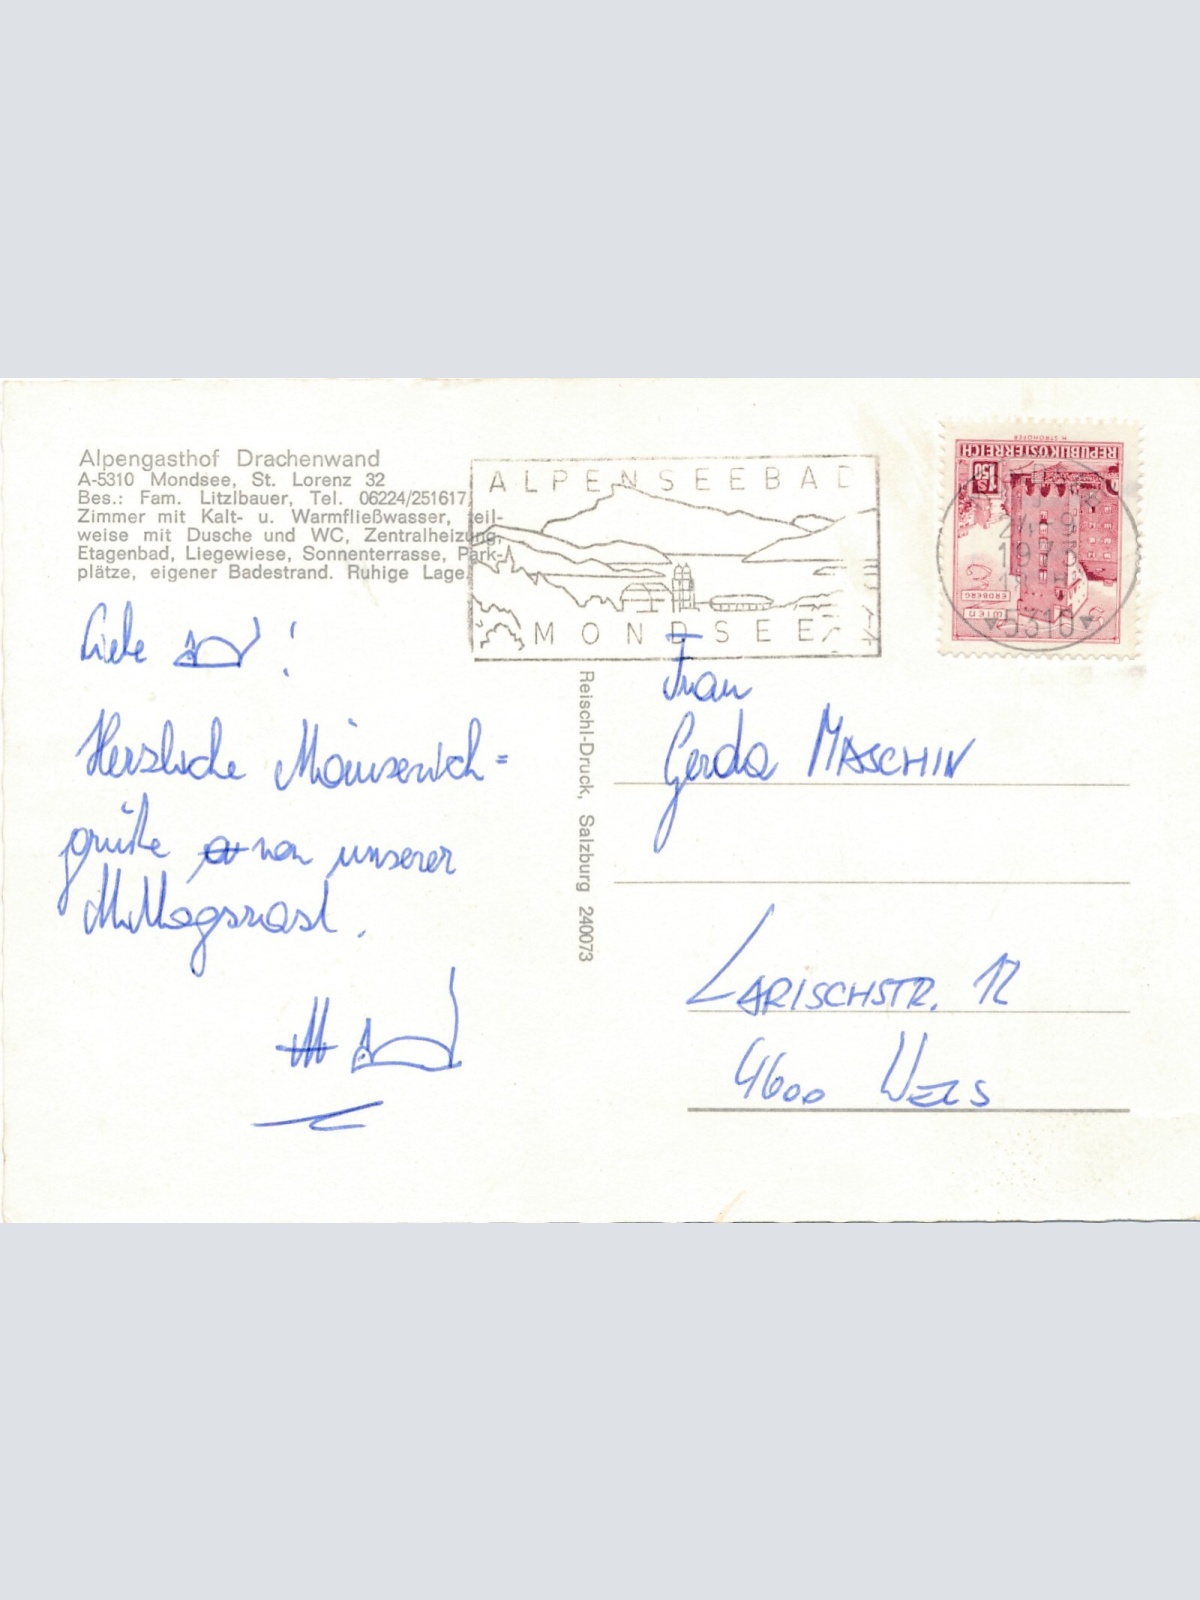 Alpengasthof Drachenwand
A-5310 Mondsee, St. Lorenz 32
Bes.: Fam. Litzlbauer, Tel. 06224/251617
Zimmer mit Kalt- u. Warmfließwasser, teil-
weise mit Dusche und WC, Zentralheizung,
Etagenbad, Liegewiese, Sonnenterrasse, Park-
plätze, eigener Badestrand. Ruhige Lage.
ALPENSEEBAD
MONDSEE
H. STROHOFER
REPUBLIK ÖSTERREICH
S 1.50
WIEN
ERDBERG
1973
5310
Liebe !
Herzliche
grüße von unserer
Mittagsrast.
Reischl-Druck, Salzburg 240073
Frau
Gerda MASCHIN
LARISCHSTR. 12
4600 WELS